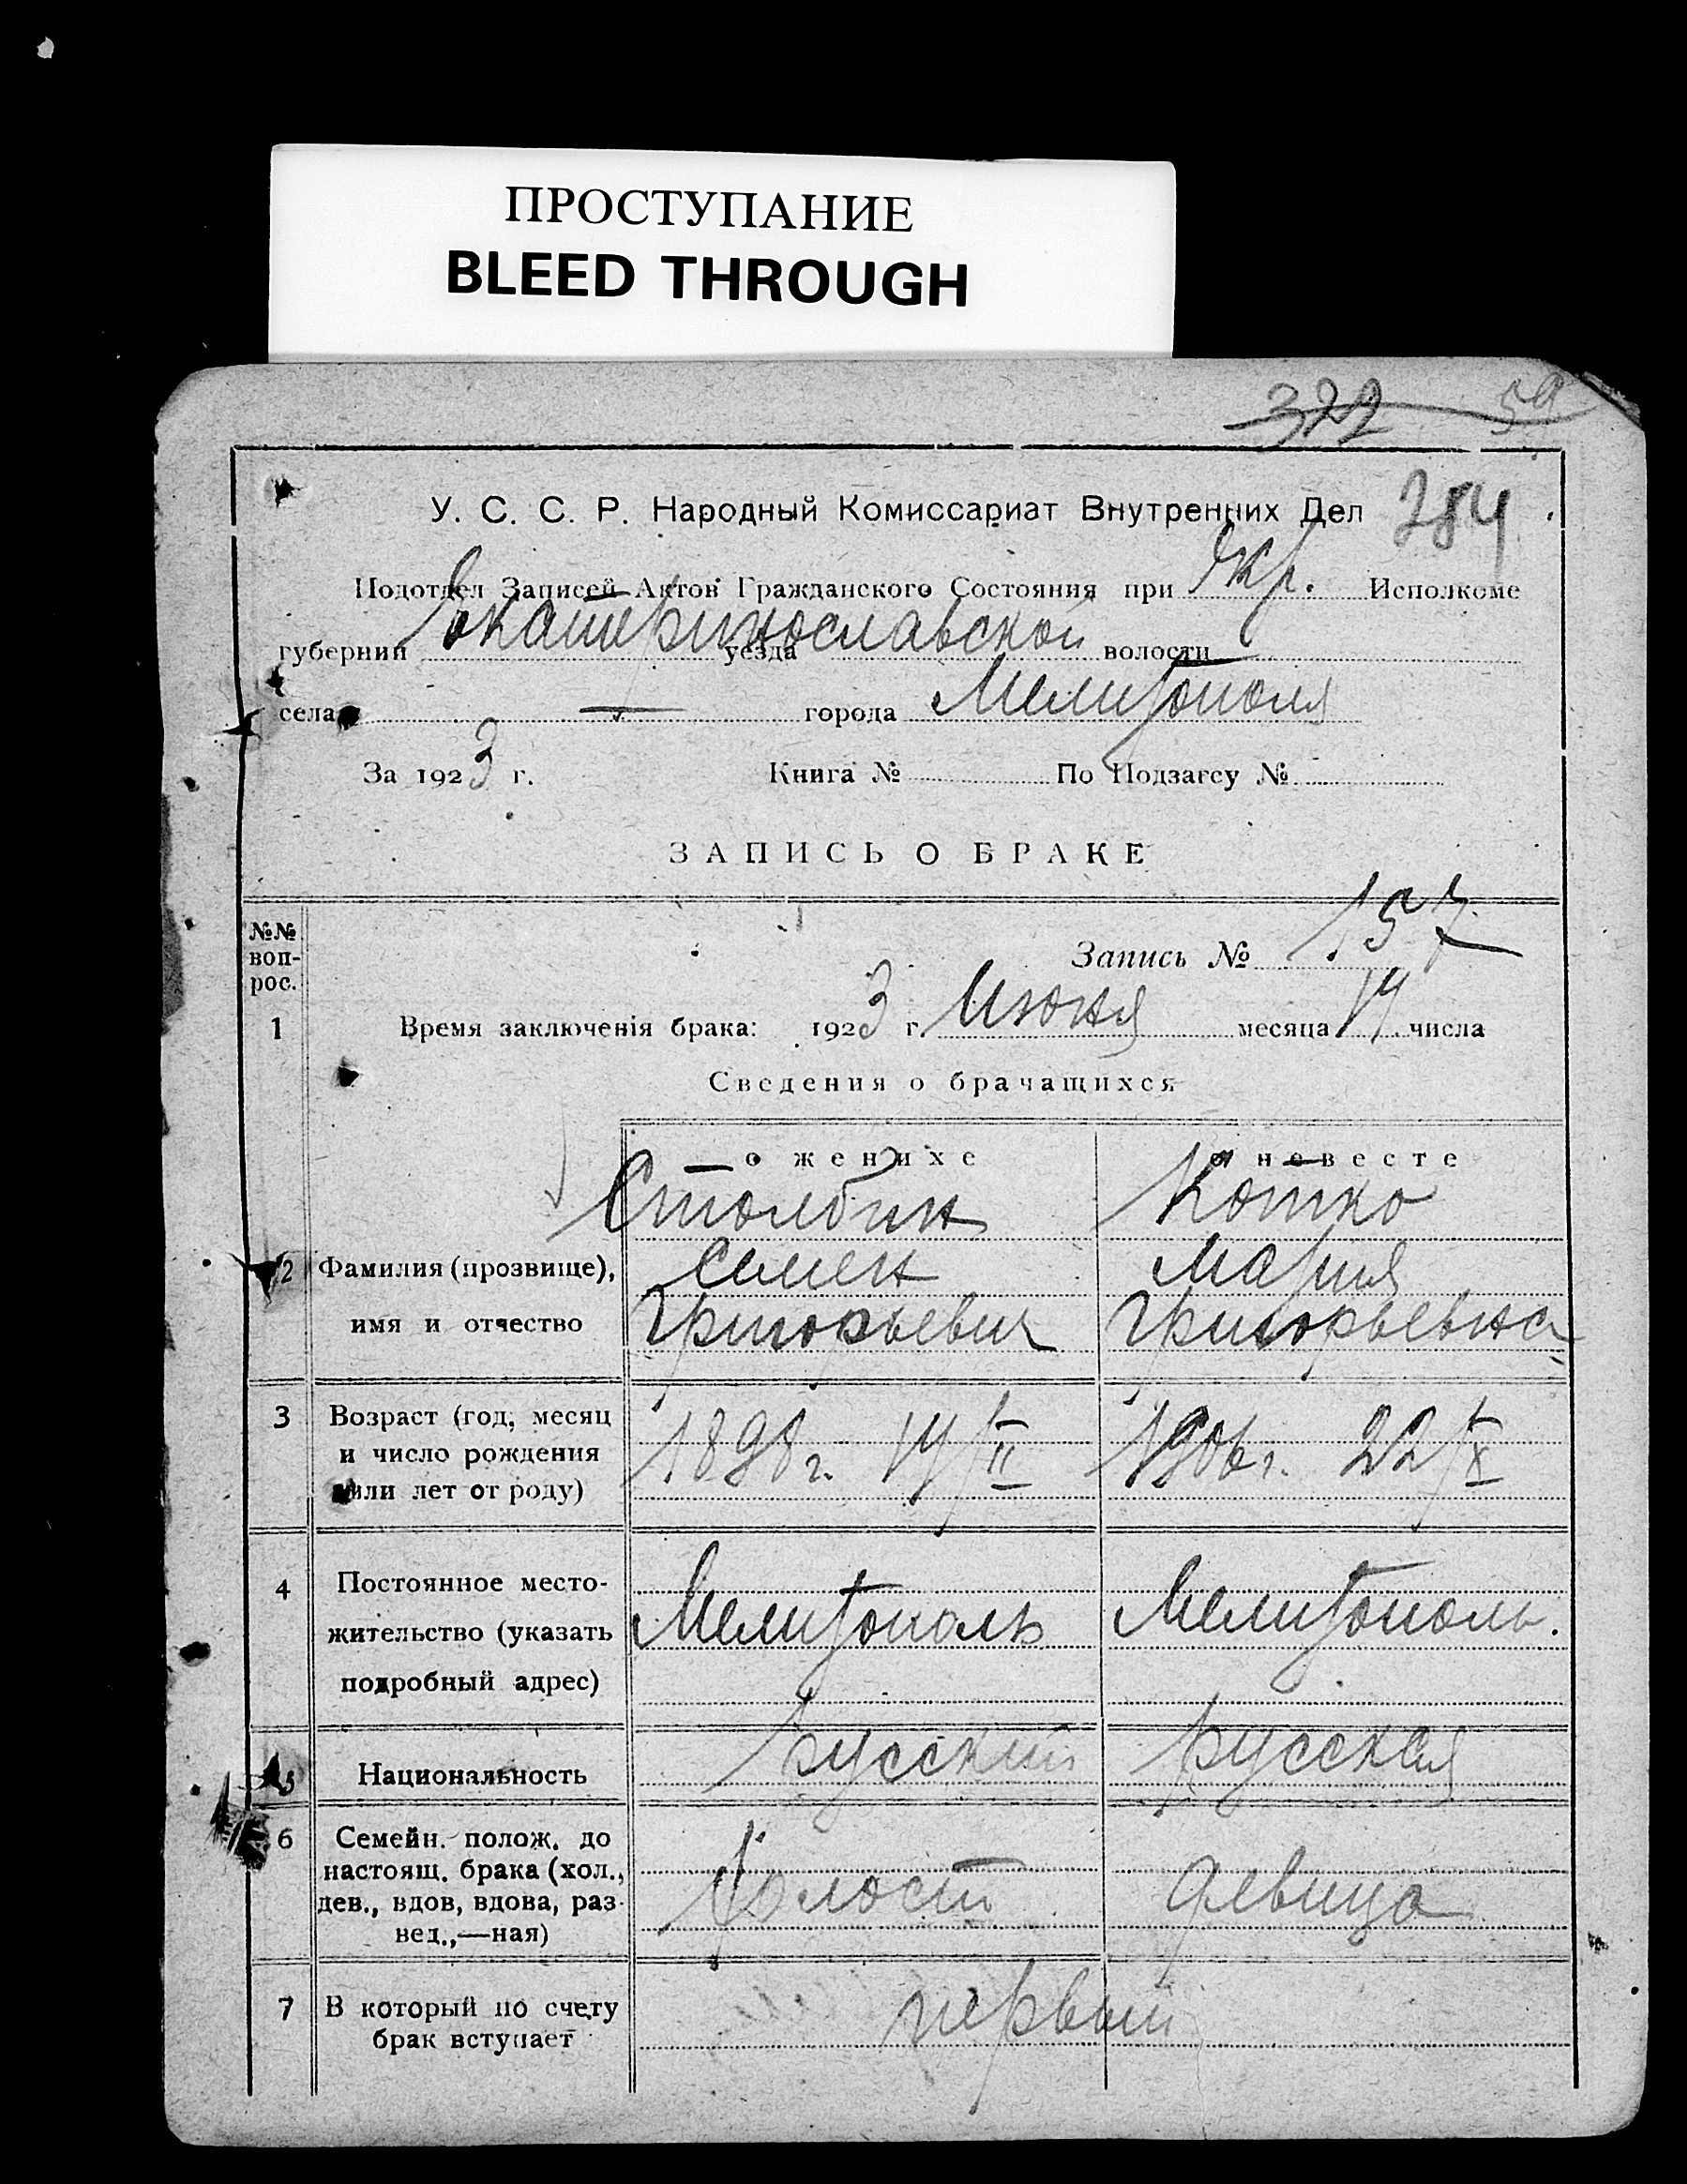 ПРОСТУПАНИЕ
BLEED THROUGH
322 59
У. С. С. Р. Народный Комиссариат Внутренних Дел 284
Подотдел Записей Актов Гражданского Состояния при Окр. Исполкоме
губернии Екатеринославской уезда волости —
села — города Мелитополя
За 1923 г. Книга № По Подзагсу №
ЗАПИСЬ О БРАКЕ
№№ вопрос.
Запись № 157
1 Время заключенія брака: 1923 г. Июня месяца 14 числа
Сведения о брачащихся
о женихе о невесте
Столбин Котко
2 Фамилия (прозвище), Семен Мария
имя и отчество Григорьевич Григорьевна
3 Возраст (год, месяц
и число рождения 1898 г. 14/II 1906 г. 22/X
или лет от роду)
4 Постоянное место-
жительство (указать Мелитополь Мелитополь.
подробный адрес)
5 Национальность русский русская
6 Семейн. полож. до
настоящ. брака (хол.,
дев., вдов, вдова, раз- холост девица
вед.,—ная)
7 В который по счету первый
брак вступает